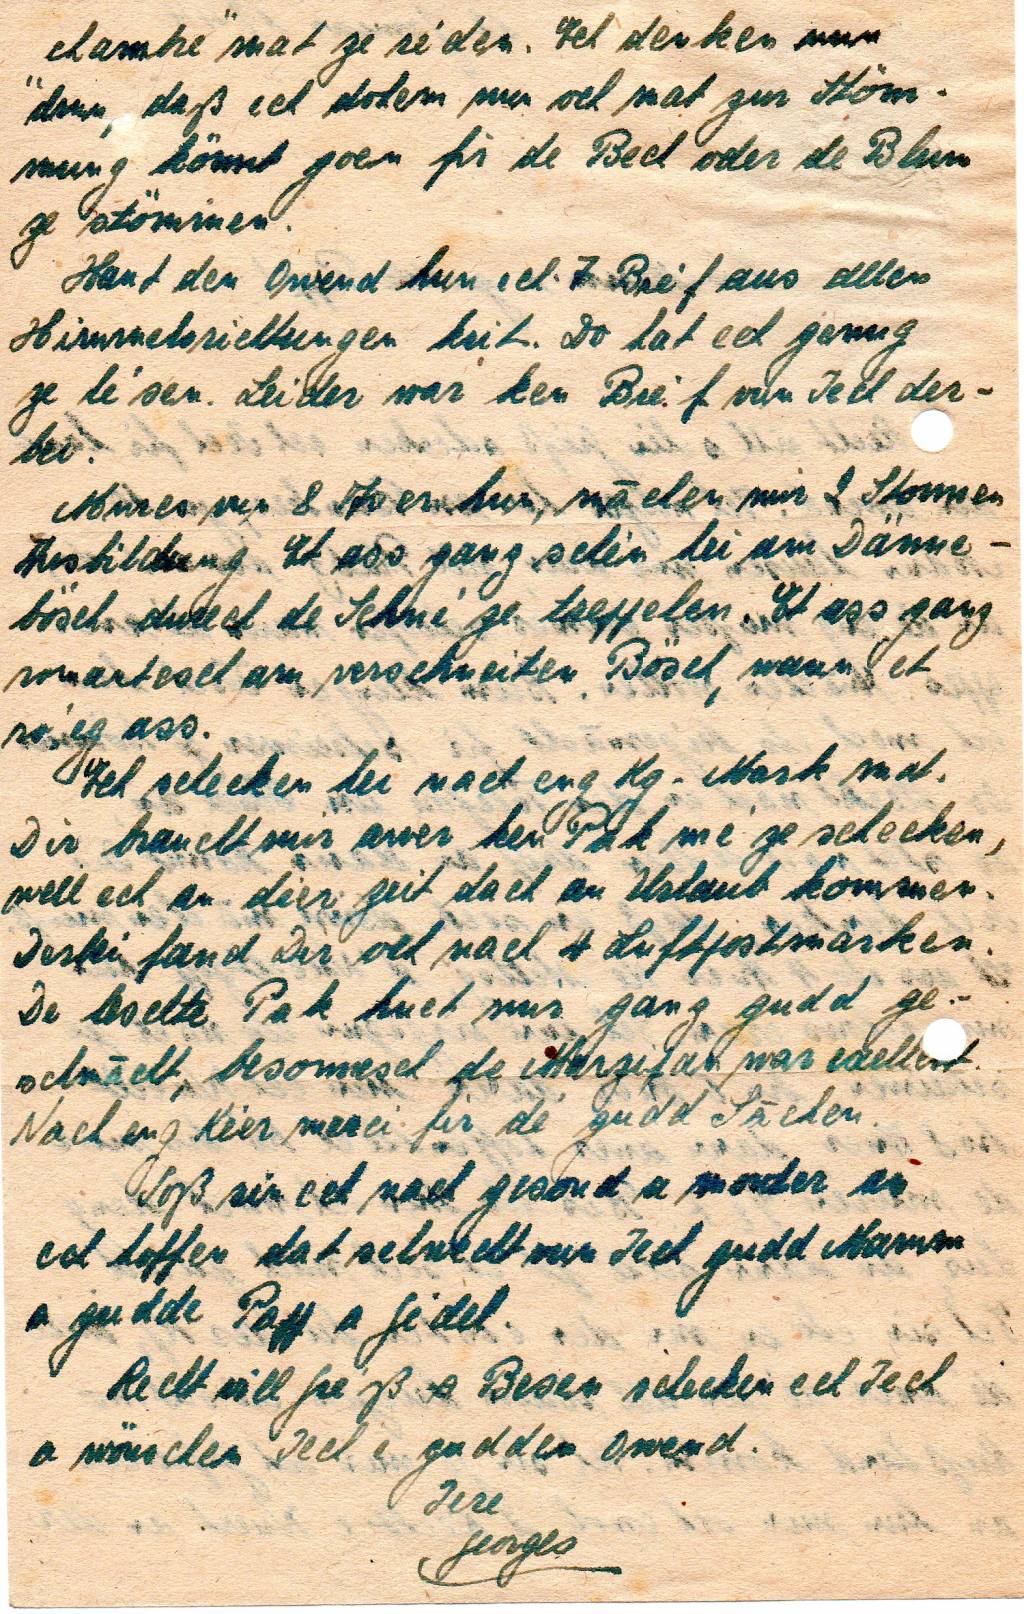 ze rieden. Ech denken
drun, daß ech dohem nun och mat zur Stöm-
mung könnt goen fir de Bech oder de Blum
ze stömmen.
Haut den Owend hun ech 7 Bréif aus allen
Himmelsrichtungen krit. Do hat ech genug
ze liésen. Leider war ken Bréif vun Iech der-
bei.
Mures vun 8 Auer hun, mächen mir 2 Stonnen
Ausbildung. Et ass ganz schén hei am Dänne-
bösch duerch de Schné ze treppelen. Et ass ganz
romantesch am verschneiten Bösch, wann et
ró'eg ass.
Ech schecken hei nach eng Kg-Mark mat.
Dir braucht mir awer ken Pak mé ze schecken,
well ech an dier Zeit dach an Urlaub kommen.
fand Dir och nach 4 Luftpostmarken.
De leschte Pak huet mir ganz gudd ge-
schmācht, besonnesch de Marzipan war exellent.
Nach eng Kéer merci fir dé gudd Sāchen.
Soß sin ech nach gesond a monter an
ech hoffen dat selwecht vun Iech gudd Mamm
a gudde Papp a Gidel.
Recht vill Gré'ß a Besen schecken ech Iech
a wönschen Iech e gudden Owend.
Iere
Georges